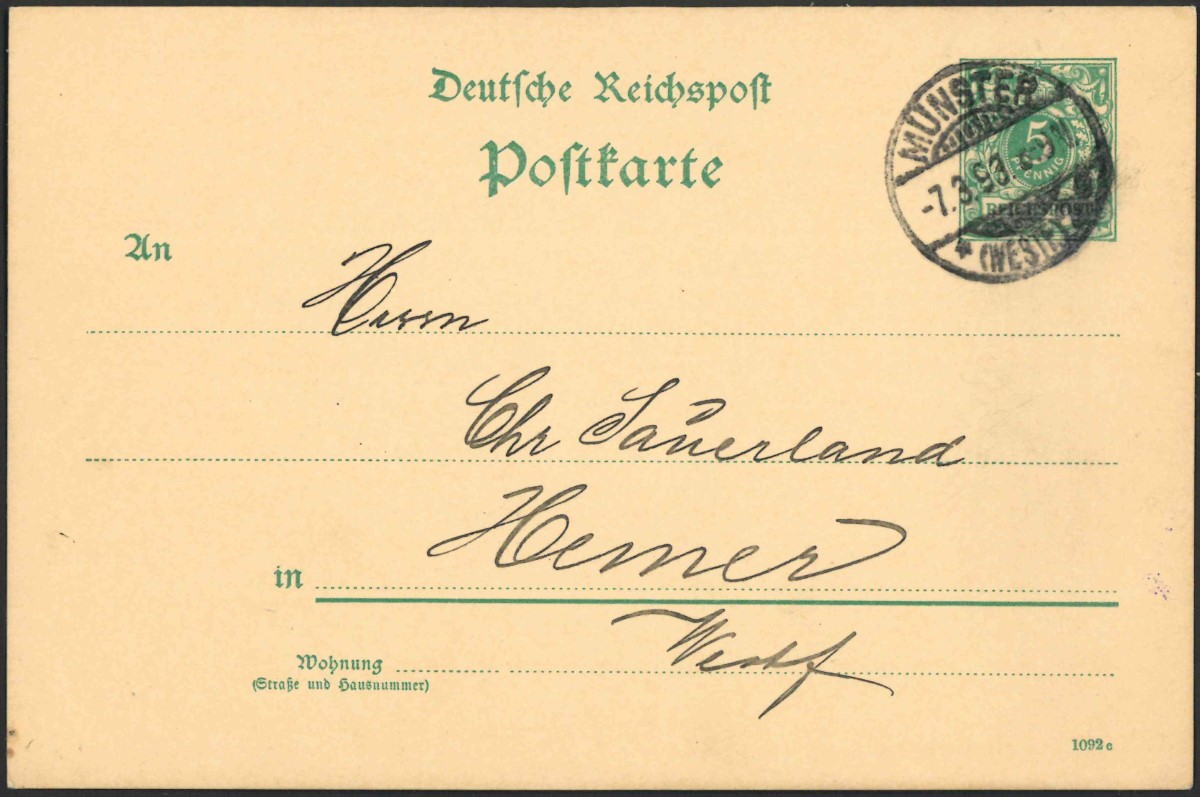 Deutsche Reichspost
Postkarte
5
PFENNIG
REICHSPOST
MÜNSTER
-7.3.93.
* (WESTF)
An
Herrn
Chr Sauerland
in Hemer
Westf
Wohnung
(Straße und Hausnummer)
1092 c